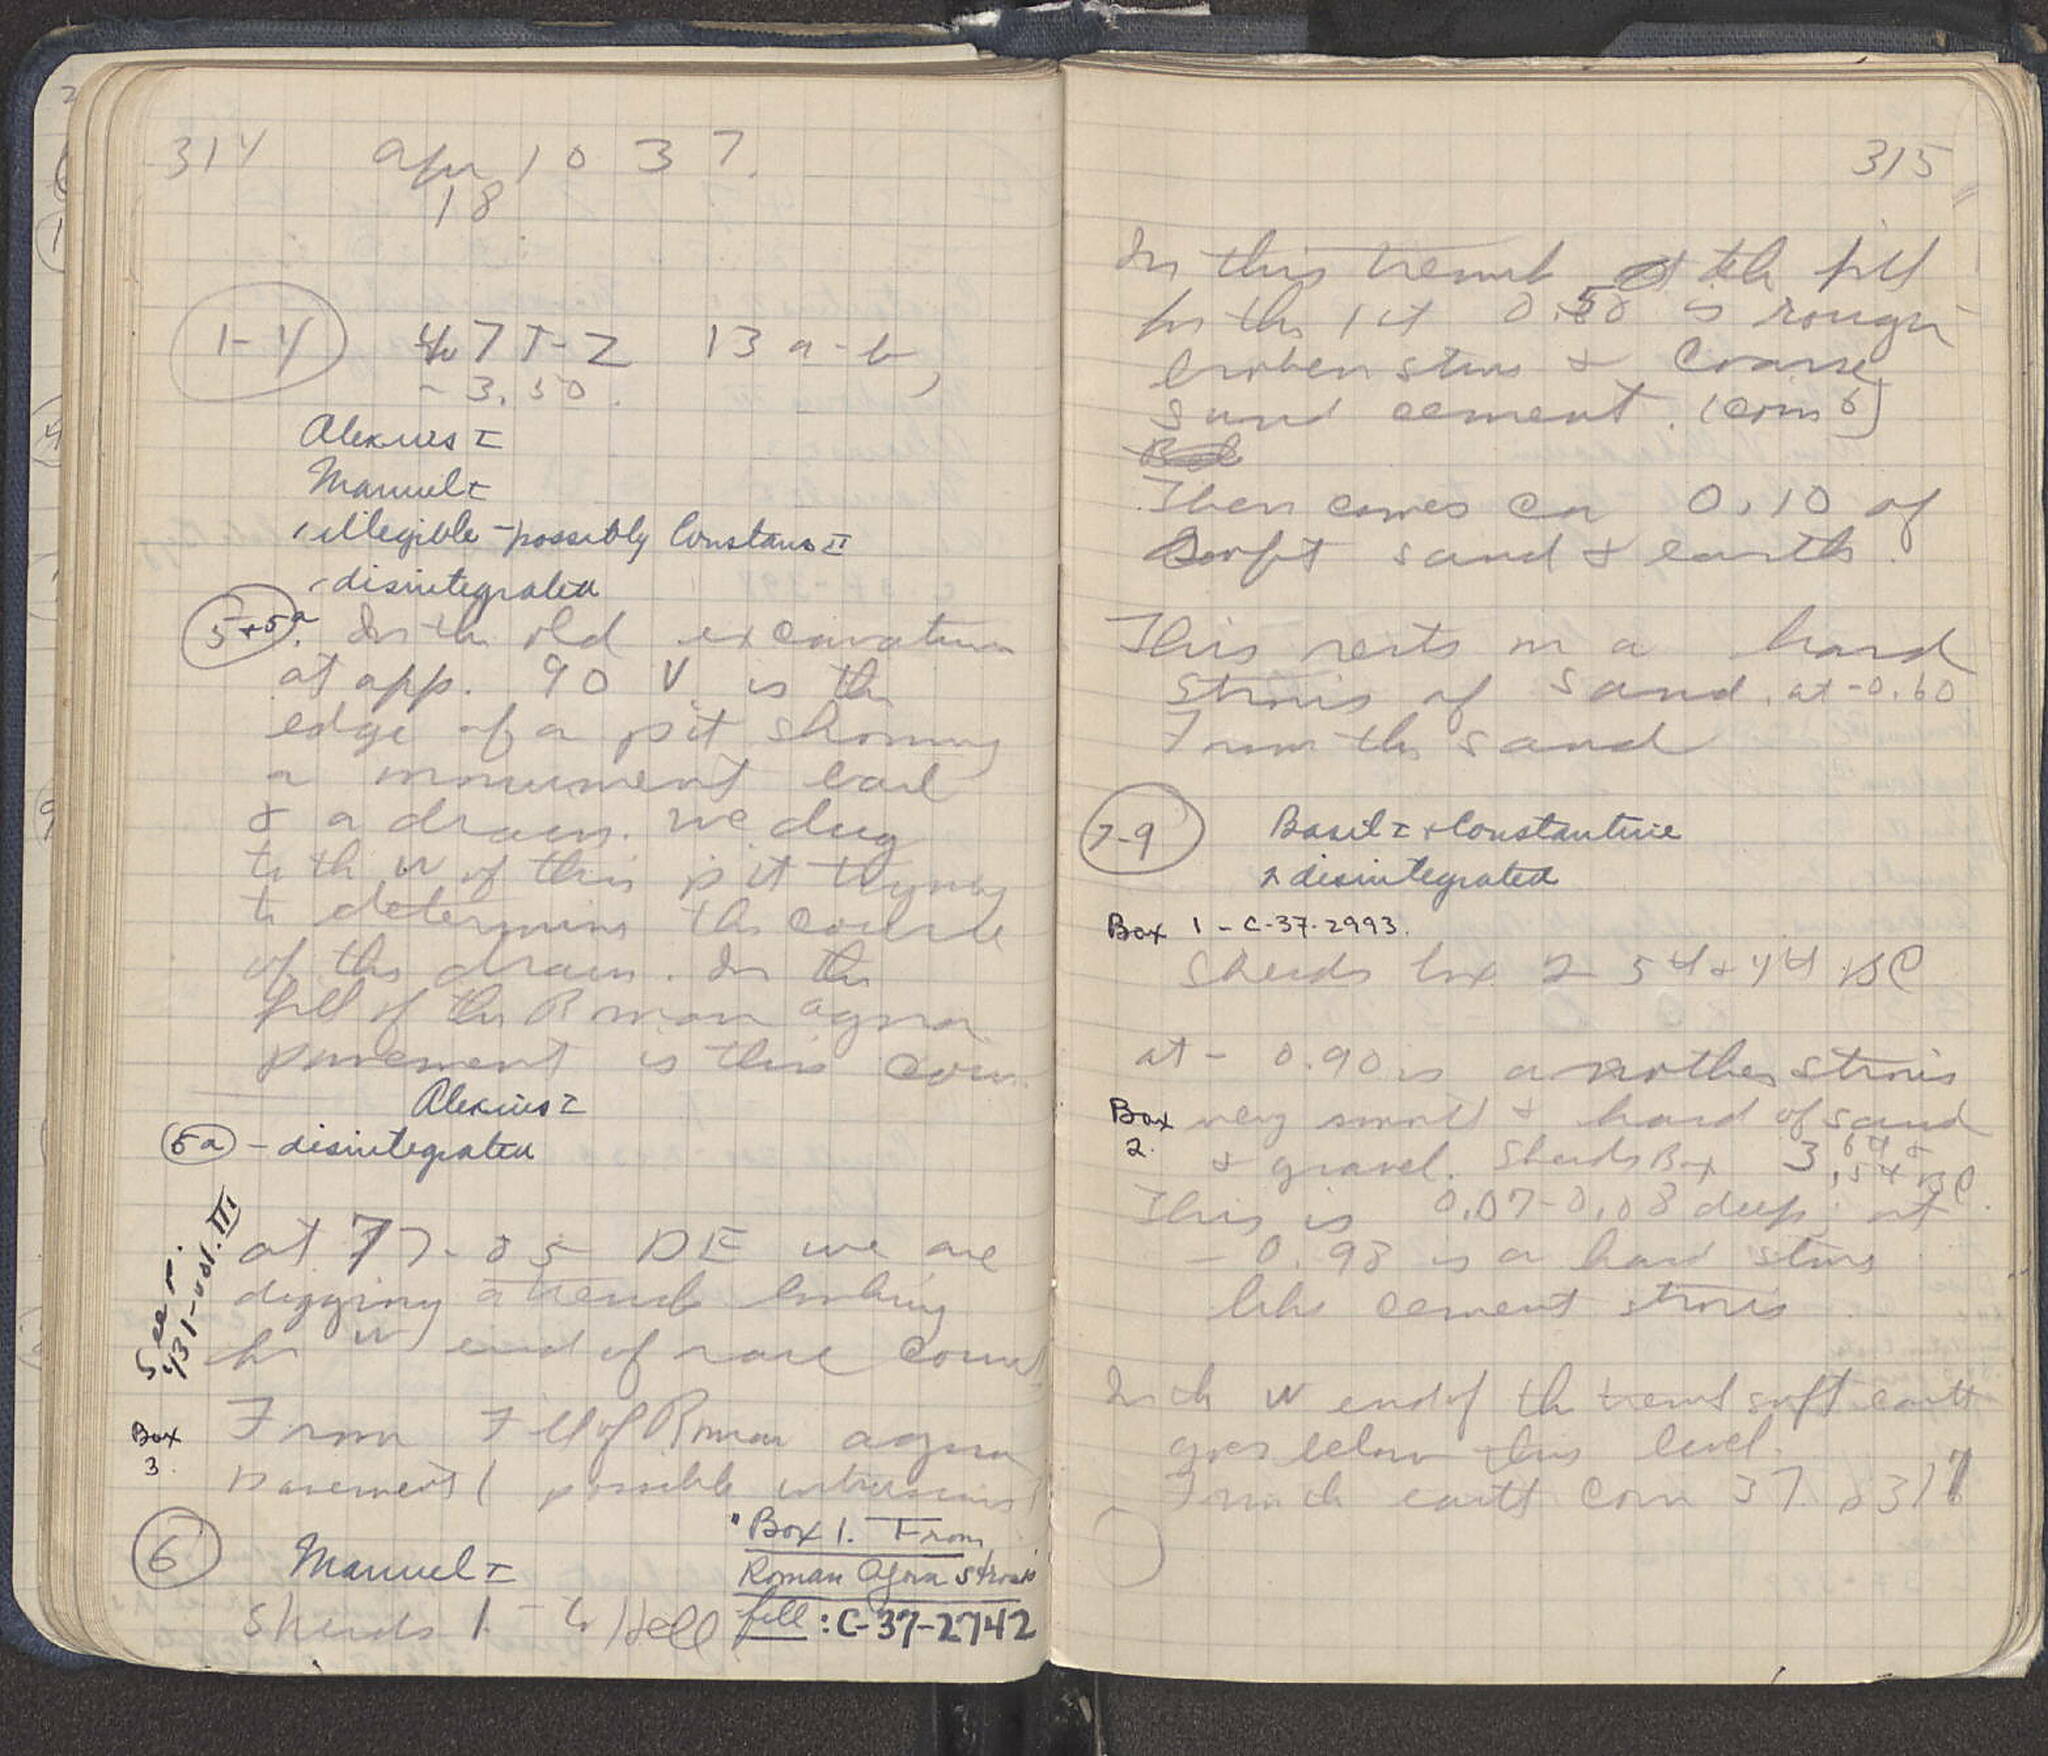 314 Apr 10 37.
18
1-4 47 T-Z 13 a-b,
-3.50.
Alexius I
Manuel I
1 illegible - possibly Constans II
1 disintegrated
5+5a. In the old excavation
at app. 90 V is the
edge of a pit showing
a monument base
& a drain. We dug
to the W of this pit trying
to determine the course
of the drain. In the
fill of the Roman agora
pavement is this coin.
Alexius I
5a - disintegrated
See p.
431-vol. III
at 77-85 DE we are
digging a trench looking
for W end of race course
Box
3.
From Fill of Roman agora
pavement (possible intrusions)
6 Manuel I
Sherds 1 - Hell
"Box 1. From
Roman Agora strosis
fill: C-37-2742
315
In this trench the fill
for the 1st 0.50 is rough
broken stones & coarse
sand cement. (coin 6)
Then comes ca 0.10 of
soft sand & earth.
This rests on a hard
strosis of sand. at -0.60
From the sand
7-9 Basil I + Constantine
2 disintegrated
Box 1 - C-37-2993.
Sherds box 2 5th & 4th BC
at - 0.90 is another strosis
Box
2.
very small & hard of sand
& gravel. Sherds Box 3, 6th & 5th BC.
This is 0.07-0.08 deep; at
- 0.98 is a hard
like cement strosis
In the W end of the trench soft earth
goes below this level.
From the earth coin 37 p 317